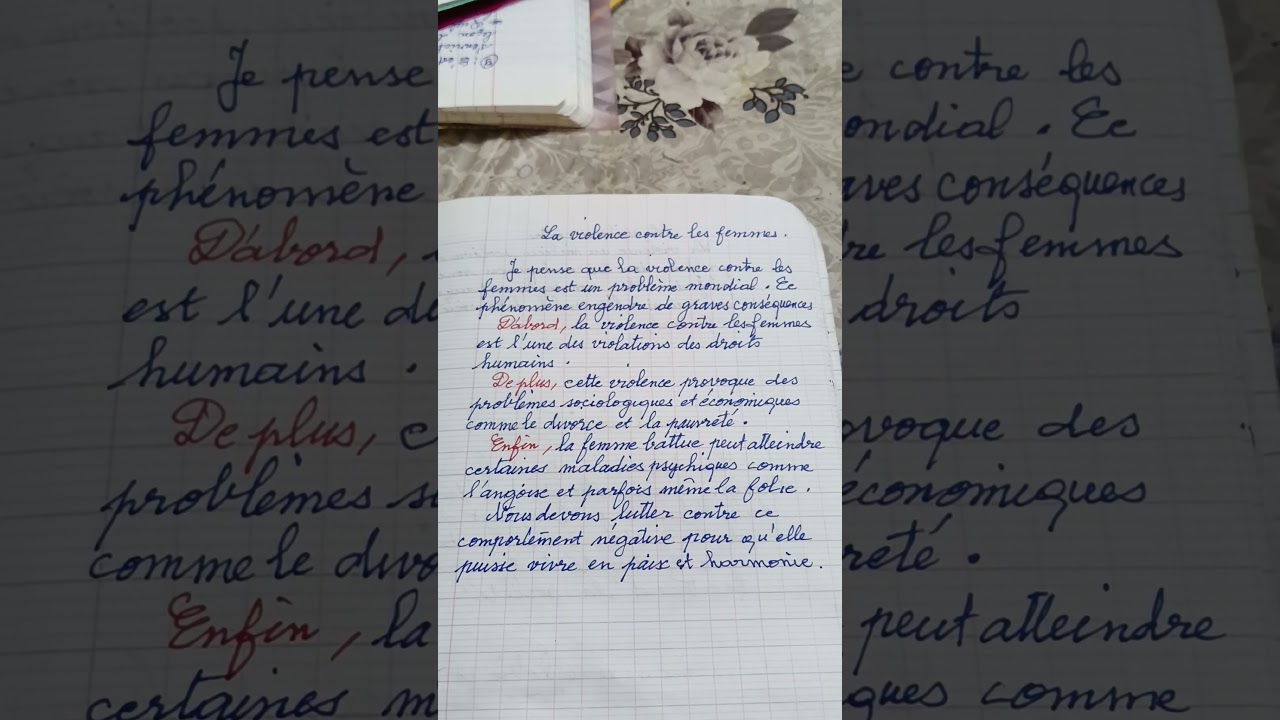 La violence contre les femmes.
Je pense que la violence contre les
femmes est un problème mondial. Ce
phénomène engendre de graves conséquences
D'abord, la violence contre les femmes
est l'une des violations des droits
humains.
De plus, cette violence provoque des
problèmes sociologiques et économiques
comme le divorce et la pauvreté.
Enfin, la femme battue peut atteindre
certaines maladies psychiques comme
l'angoise et parfois même la folie.
Nous devons lutter contre ce
comportement négative pour qu'elle
puisse vivre en paix et harmonie.